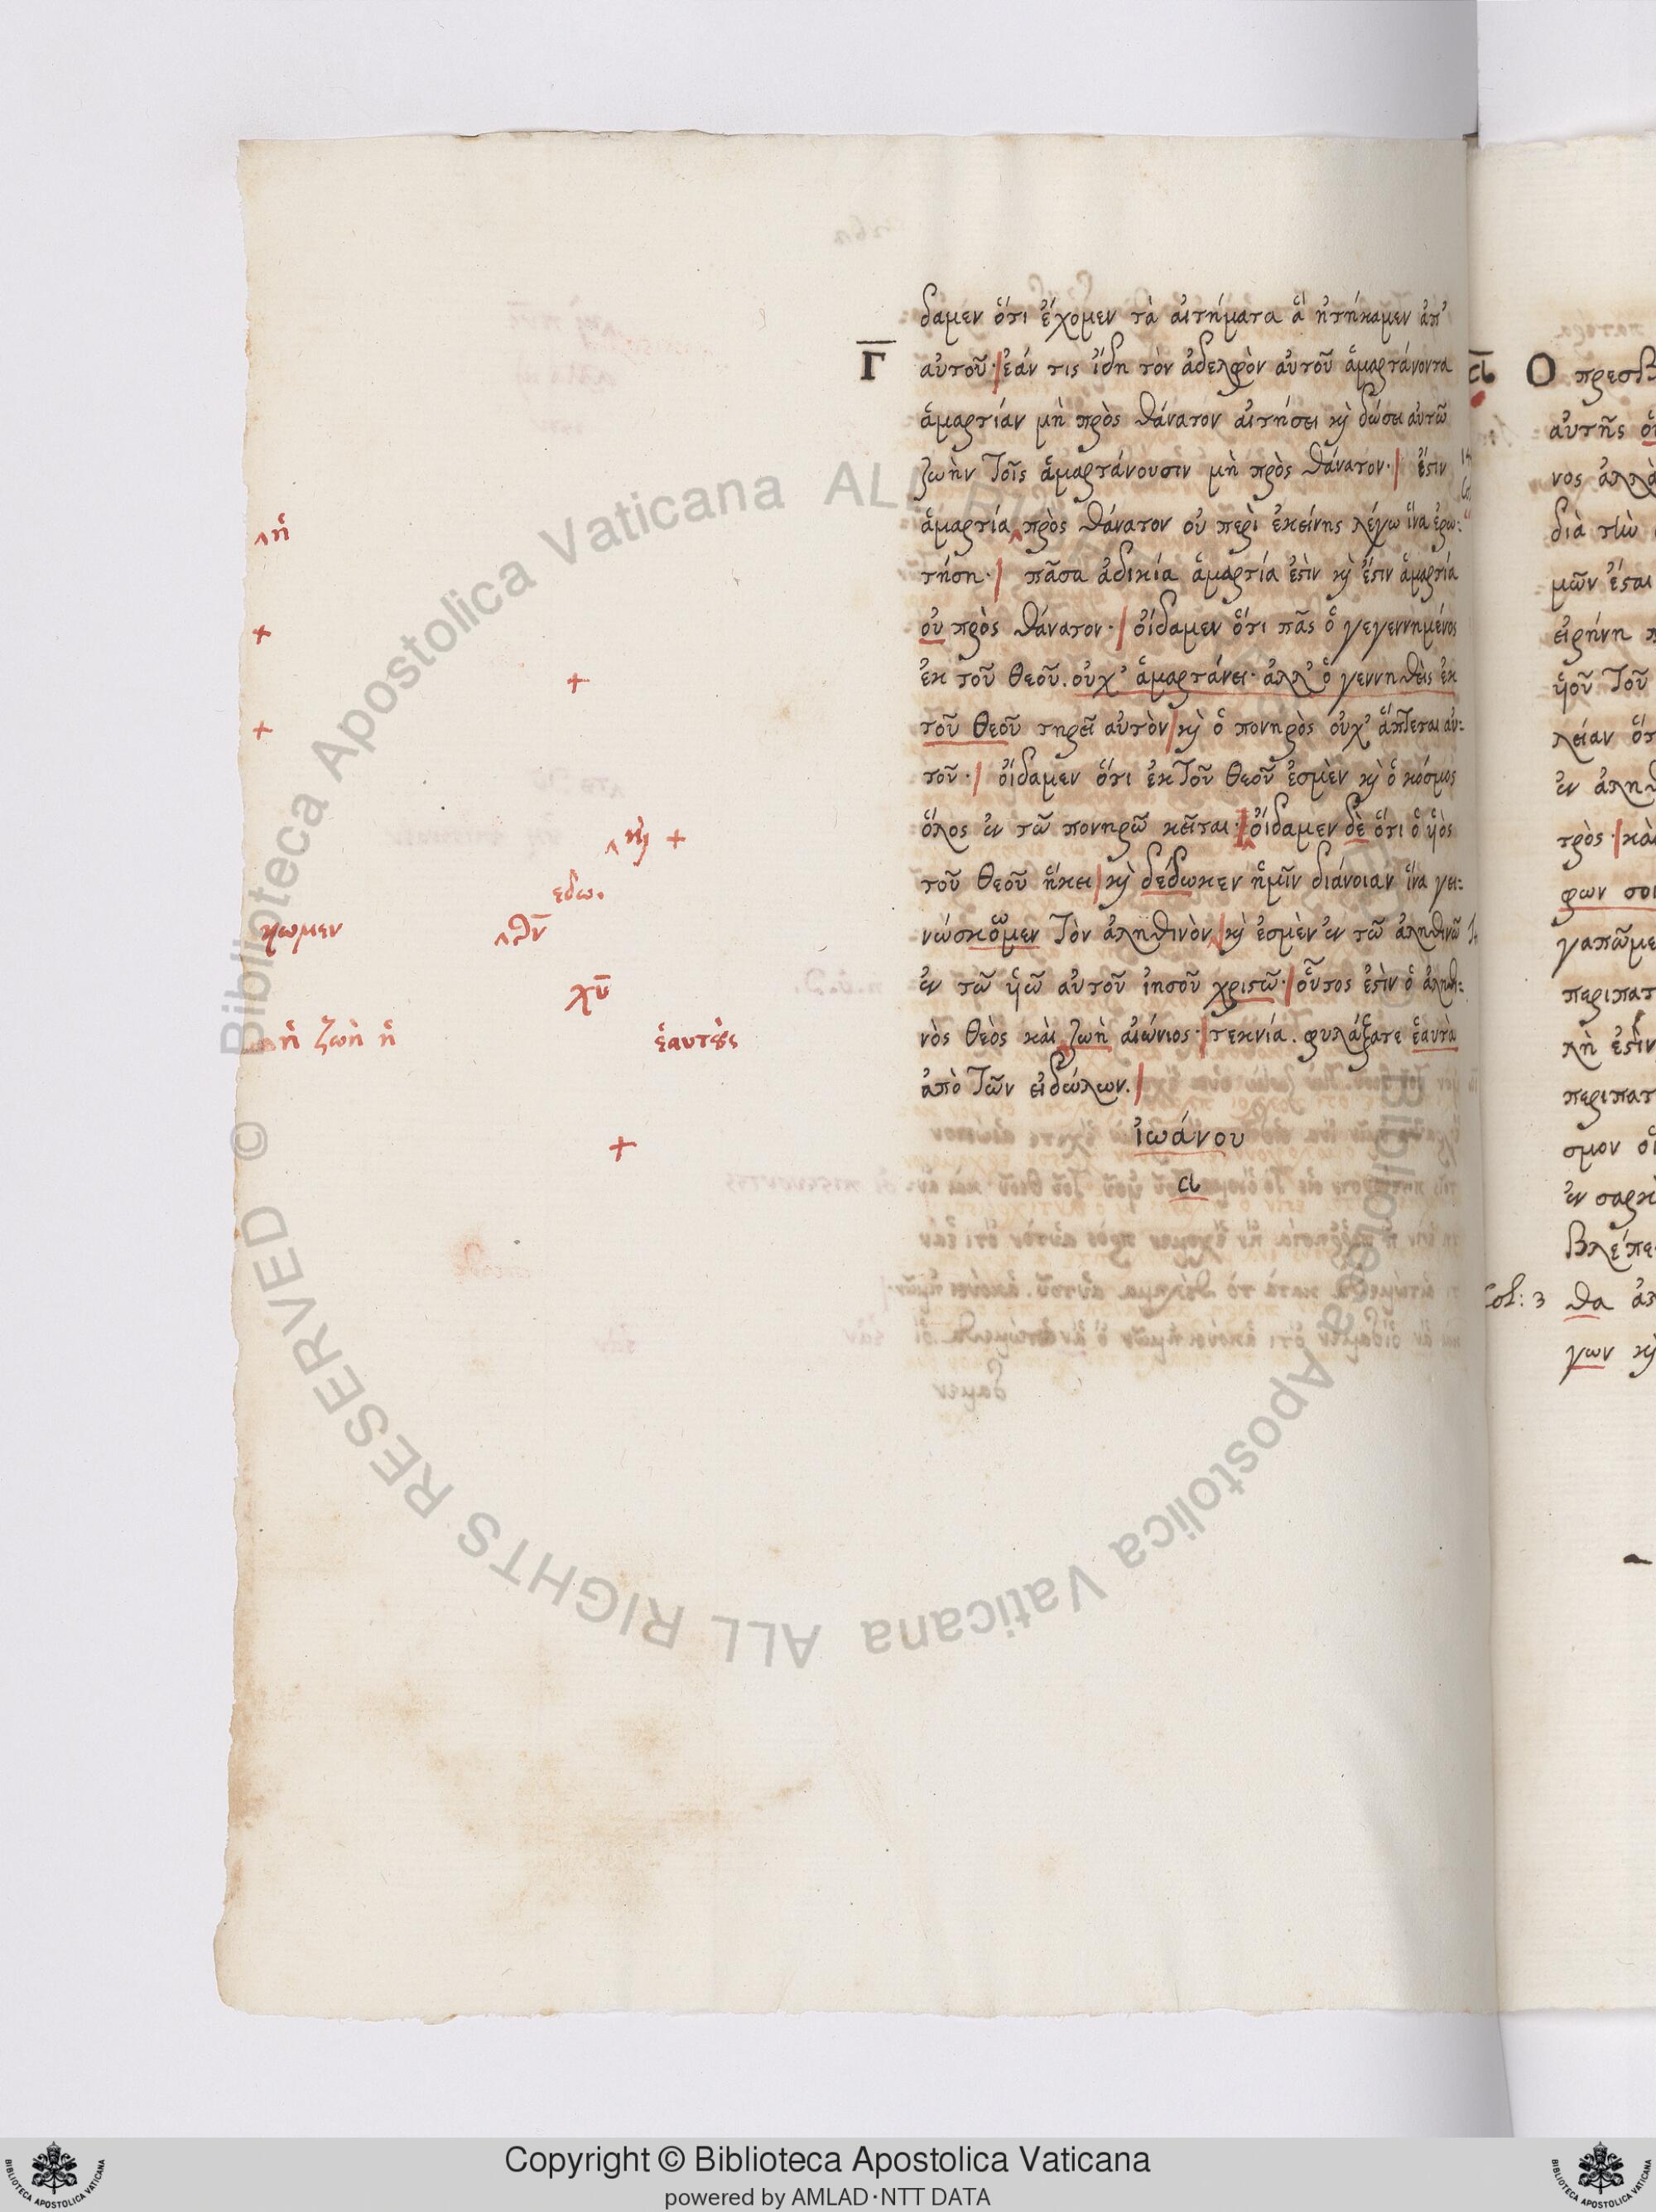 δαμεν ὅτι ἔχομεν τὰ αἰτήματα ἃ ἠτήκαμεν ἀπ'
Γ αὐτοῦ· ἐάν τις ἴδη τὸν ἀδελφὸν αὐτοῦ ἁμαρτάνοντα
ἁμαρτίαν μὴ πρὸς θάνατον αἰτήσει κὶ δώσει αὐτῶ
ζωὴν τοῖς ἁμαρτάνουσιν μὴ πρὸς θάνατον· ἔστιν
^ ἡ
ἁμαρτία ^ πρὸς θάνατον οὐ περὶ ἐκείνης λέγω ἵνα ἐρω:
τήση· πᾶσα ἀδικία ἁμαρτία ἐστὶν κὶ ἔστιν ἁμαρτία
+
οὐ πρὸς θάνατον· οἴδαμεν ὅτι πᾶς ὁ γεγεννημένος
+
ἐκ τοῦ θεοῦ. οὐχ' ἁμαρτάνει· ἀλλ' ὁ γεννηθεὶς ἐκ
+
τοῦ θεοῦ τηρεῖ αὐτὸν κὶ ὁ πονηρὸς οὐχ' ἅπτεται αὐ:
τοῦ· οἴδαμεν ὅτι ἐκ τοῦ θεοῦ ἐσμὲν κὶ ὁ κόσμος
^ κὶ +
ὅλος ἐν τῶ πονηρῶ κεῖται· οἴδαμεν δὲ ὅτι ὁ ὑὸς
εδω.
τοῦ θεοῦ ἥκει κὶ δέδωκεν ἡμῖν διάνοιαν ἵνα γει:
κωμεν ^ θν̅
νώσκομεν τὸν ἀληθινὸν ^ κὶ ἐσμὲν ἐν τῶ ἀληθινῶ
χυ̅
ἐν τῶ ὑῶ αὐτοῦ ἰησοῦ χριστῶ· οὗτος ἐστὶν ὁ ἀληθι:
ἡ ζωὴ ἡ ἑαυτοὺς
νὸς θεὸς καὶ ζωὴ αἰώνιος· τεκνία. φυλάξατε ἑαυτὰ
ἀπὸ τῶν εἰδώλων.
+
ἰωάνου
α
α Ο πρεσβ
αὐτῆς
νος ἀλλὰ
διὰ τὴν
μῶν ἔσται
εἰρήνη π
ὑοῦ τοῦ
λείαν ὅτ
ἐν ἀληθ
τρὸς· κα
φων σοι
γαπῶμε
περιπατ
λὴ ἐστὶν
περιπατ
σμον οἱ
ἐν σαρκ
βλέπε
Col: 3 θα
γων κὶ
Copyright © Biblioteca Apostolica Vaticana
powered by AMLAD·NTT DATA
© Biblioteca Apostolica Vaticana ALL RIGHTS RESERVED
© Biblioteca Apostolica Vaticana ALL RIGHTS RESERVED
BIBLIOTECA APOSTOLICA VATICANA
BIBLIOTECA APOSTOLICA VATICANA